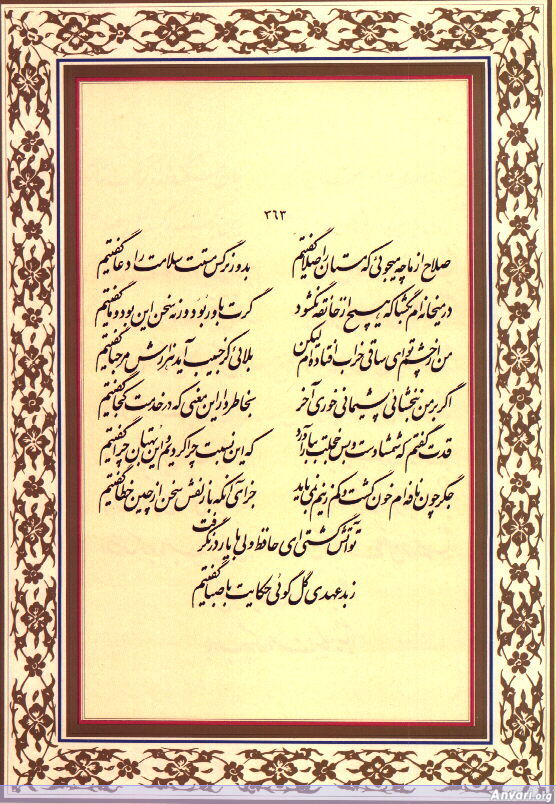 ۳۶۳
صلاح از ما چه میجوئی که مستان را صلا گفتیم بدور نرگس مستت سلامت را دعا گفتیم
در میخانه ام بگشا که هیچ از خانقه نگشود گرت باور بود ور نه سخن این بود و ما گفتیم
من از چشم تو ای ساقی خراب افتاده ام لیکن بلائی کز حبیب آید هزارش مرحبا گفتیم
اگر بر من نبخشائی پشیمانی خوری آخر بخاطر دار این معنی که در خدمت کجا گفتیم
قدت گفتم که شمشادست و بس خجلت ببار آورد که این نسبت چرا کردیم و این بهتان چرا گفتیم
جگر چون نافه ام خون گشت و کم زینم نمی باید جزای آنکه با زلفش سخن از چین خطا گفتیم
تو آتش گشتی ای حافظ ولی با یار در نگرفت
ز بد عهدی گل گوئی حکایت با صبا گفتیم
Anvari.org